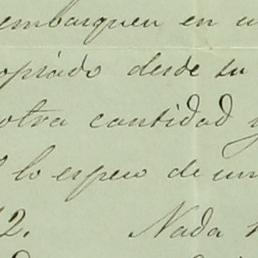 embarquen en u
opiado desde su
otra cantidad y
lo espero de un
12. Nada